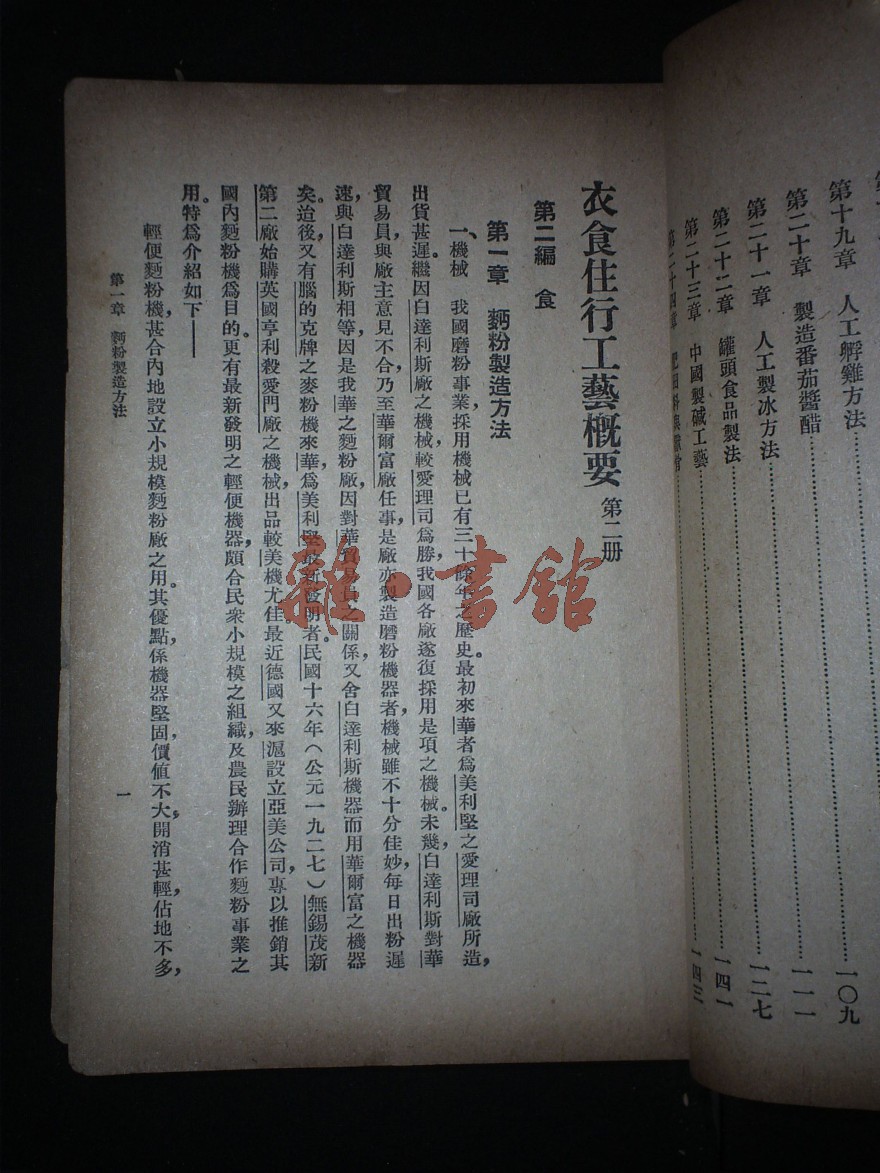 第十九章 人工孵雞方法……一〇九
第二十章 製造番茄醬醋……一一一
第二十一章 人工製冰方法……一二七
第二十二章 罐頭食品製法……一四一
第二十三章 中國製碱工藝……一四三
第二十四章
衣食住行工藝概要 第二册
第二編 食
第一章 麪粉製造方法
一、機械 我國磨粉事業，採用機械已有三十餘年之歷史。最初來華者爲美利堅之愛理司廠所造，
出貨甚遲。繼因白達利斯廠之機械較愛理司爲勝，我國各廠遂復採用是項之機械。未幾，白達利斯對華
貿易員，與廠主意見不合，乃至華爾富廠任事，是廠亦製造磨粉機器者，機械雖不十分佳妙，每日出粉遲
速，與白達利斯相等，因是我華之麪粉廠，因對華貿易員之關係，又舍白達利斯機器而用華爾富之機器
矣。迨後，又有腦的克牌之麥粉機來華，爲美利堅最新發明者。民國十六年（公元一九二七）無錫茂新
第二廠始購英國亨利殺愛門廠之機械，出品較美機尤佳。最近德國又來滬設立亞美公司，專以推銷其
國內麪粉機爲目的。更有最新發明之輕便機器，頗合民衆小規模之組織，及農民辦理合作麪粉事業之
用。特爲介紹如下——
輕便麪粉機甚合內地設立小規模麪粉廠之用。其優點，係機器堅固，價値不大，開消甚輕，佔地不多，
第一章 麪粉製造方法
一
雜·書館